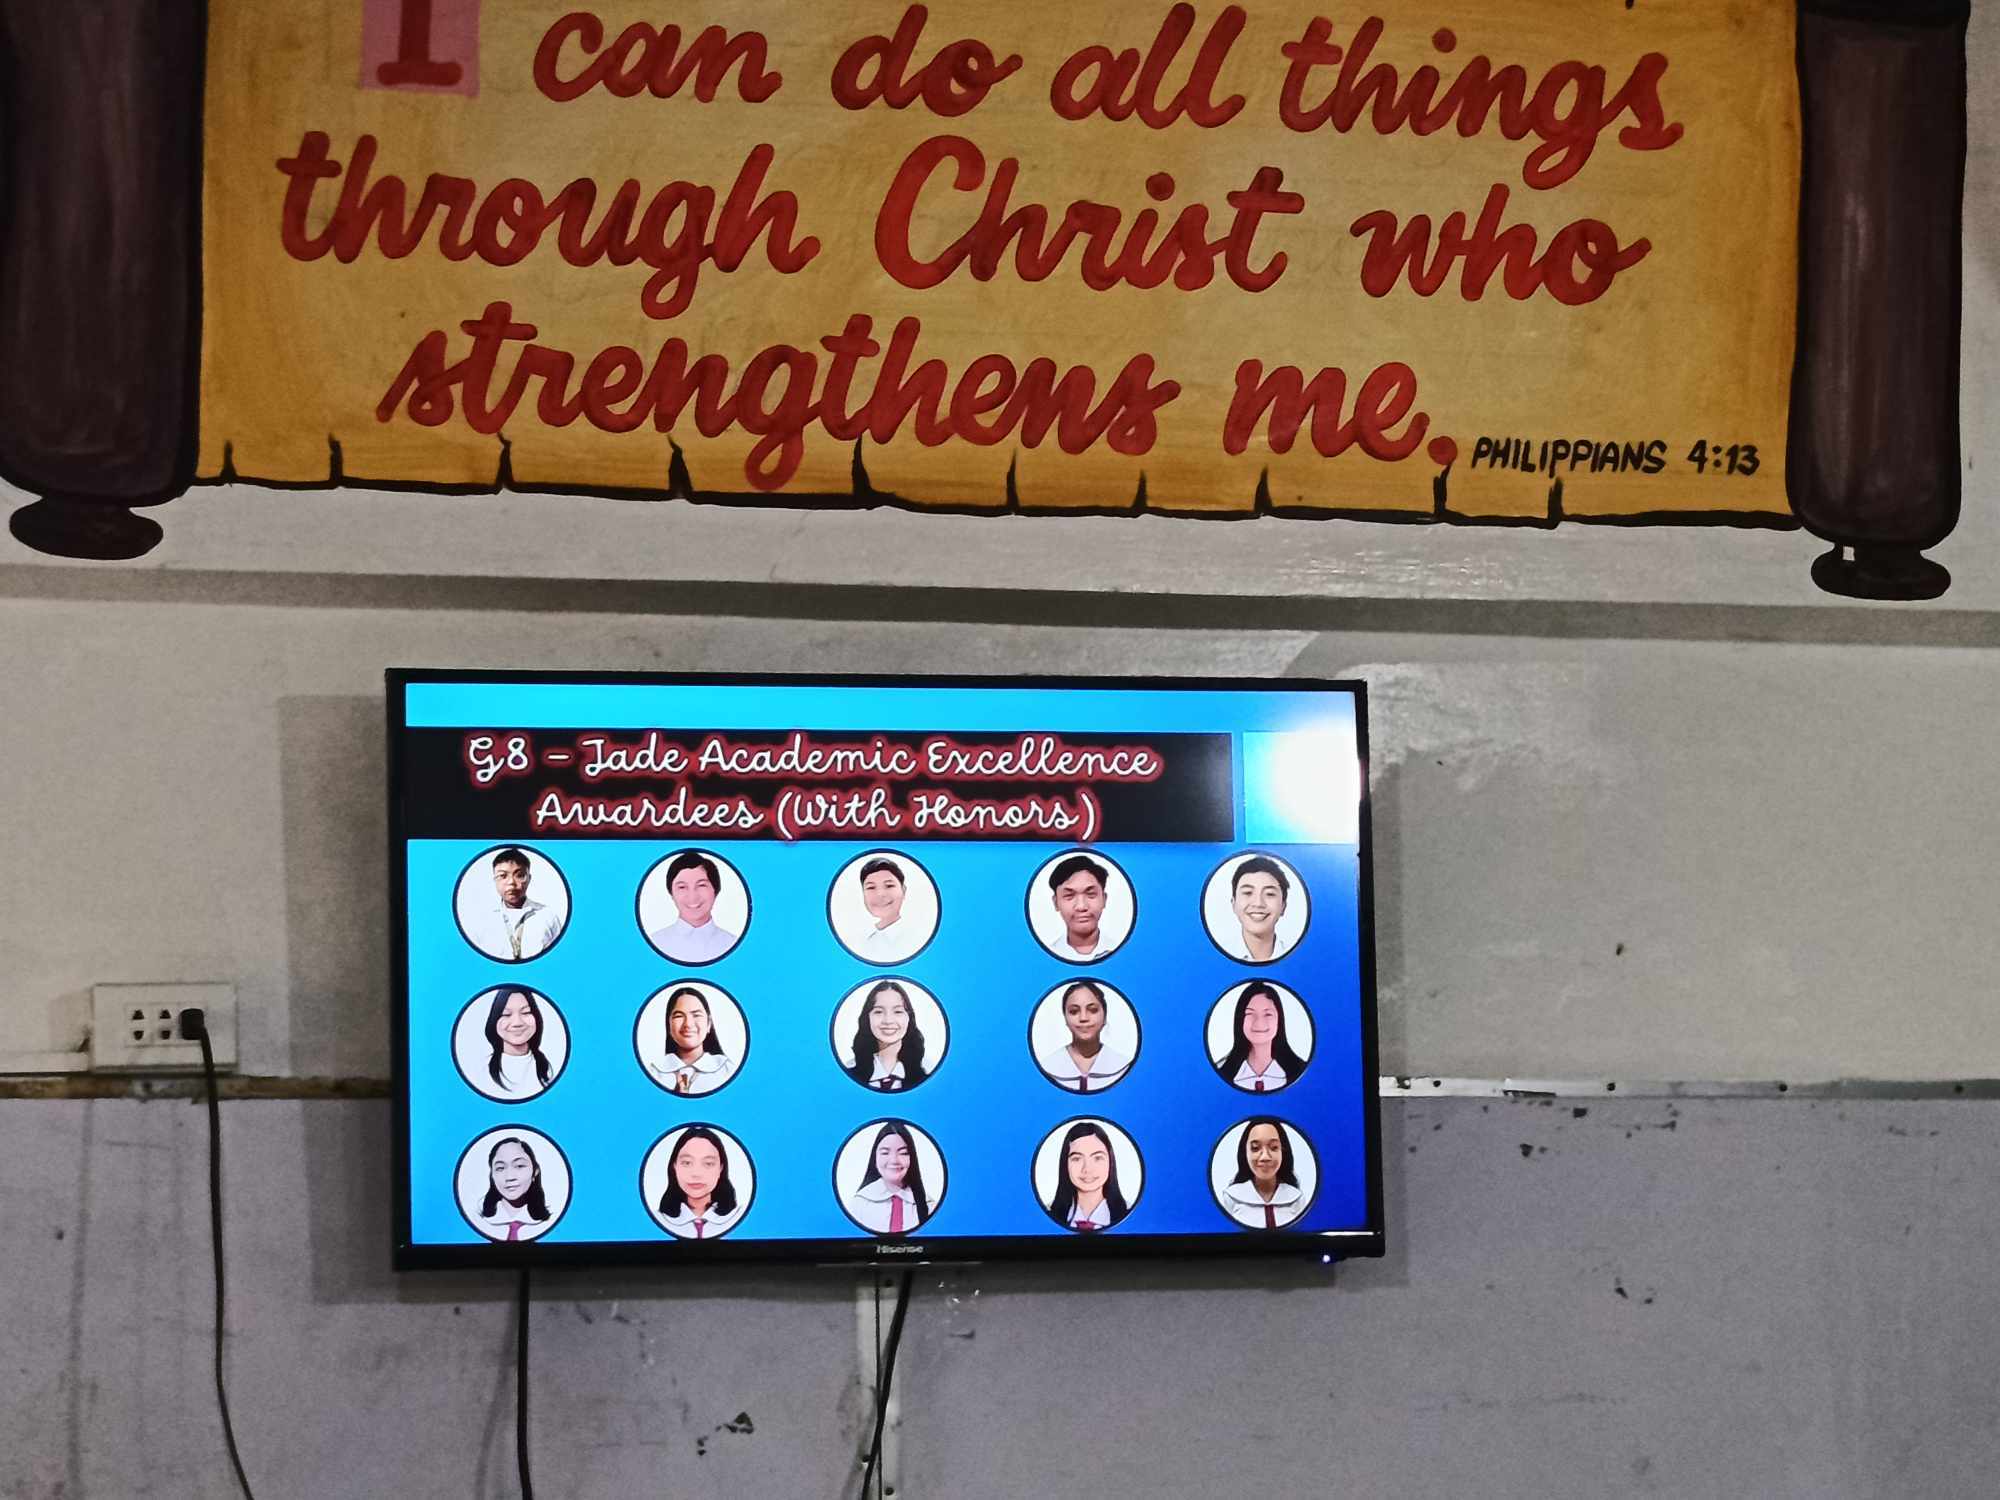 I can do all things
through Christ who
strengthens me.
PHILIPPIANS 4:13
G8 - Jade Academic Excellence
Awardees (With Honors)
Hisense